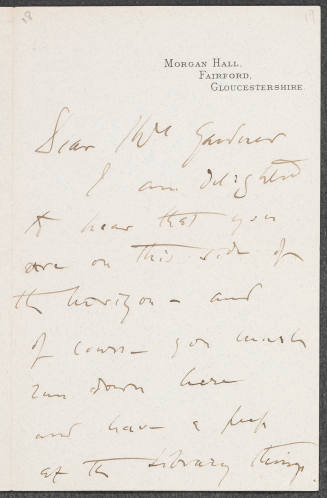 18
19
MORGAN HALL,
FAIRFORD,
GLOUCESTERSHIRE.
Dear Mrs Gardner
I am delighted
to hear that you
are on this side of
the horizon – and
of course you must
run down here
and have a peep
at the Library things.